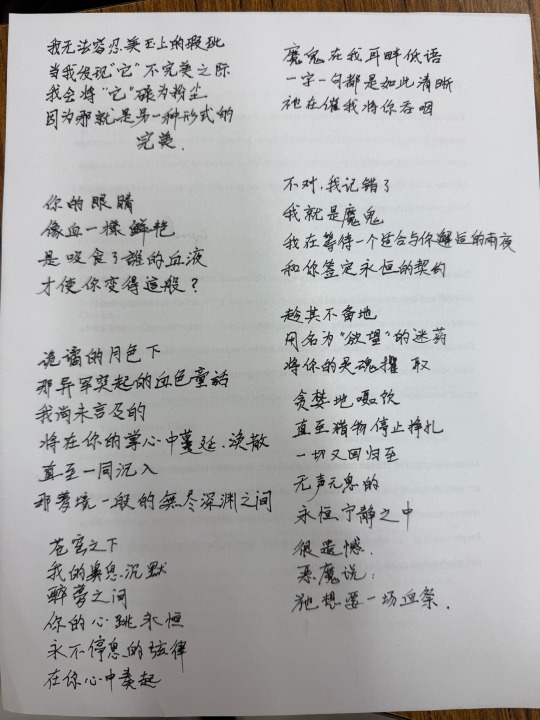 我无法容忍美玉上的瑕玼
当我发现“它”不完美之际
我会将“它”碾为粉尘
因为那就是另一种形式的
完美.
你的眼睛
像血一樣鮮艳
是吸食了誰的血液
才使你变得這般?
诡譎的月色下
那异军突起的血色童話
我尚未言及的
将在你的掌心中蔓延.涣散
直至一同沉入
那夢境一般的無尽深渊之间
苍穹之下
我的鼻息沉默
醉夢之间
你的心跳永恒
永不停息的弦律
在你心中奏起
魔鬼在我耳畔低语
一字一句都是如此清晰
祂在催我将你吞咽
不对,我记错了
我就是魔鬼
我在等待一个适合与你邂逅的雨夜
和你签定永恒的契约
趁其不备地
用名为“欲望”的迷药
将你的灵魂攫取
贪婪地啜饮
直至猎物停止挣扎
一切又回归至
无声无息的
永恒宁静之中
很遗憾.
恶魔说:
祂想要一场血祭.